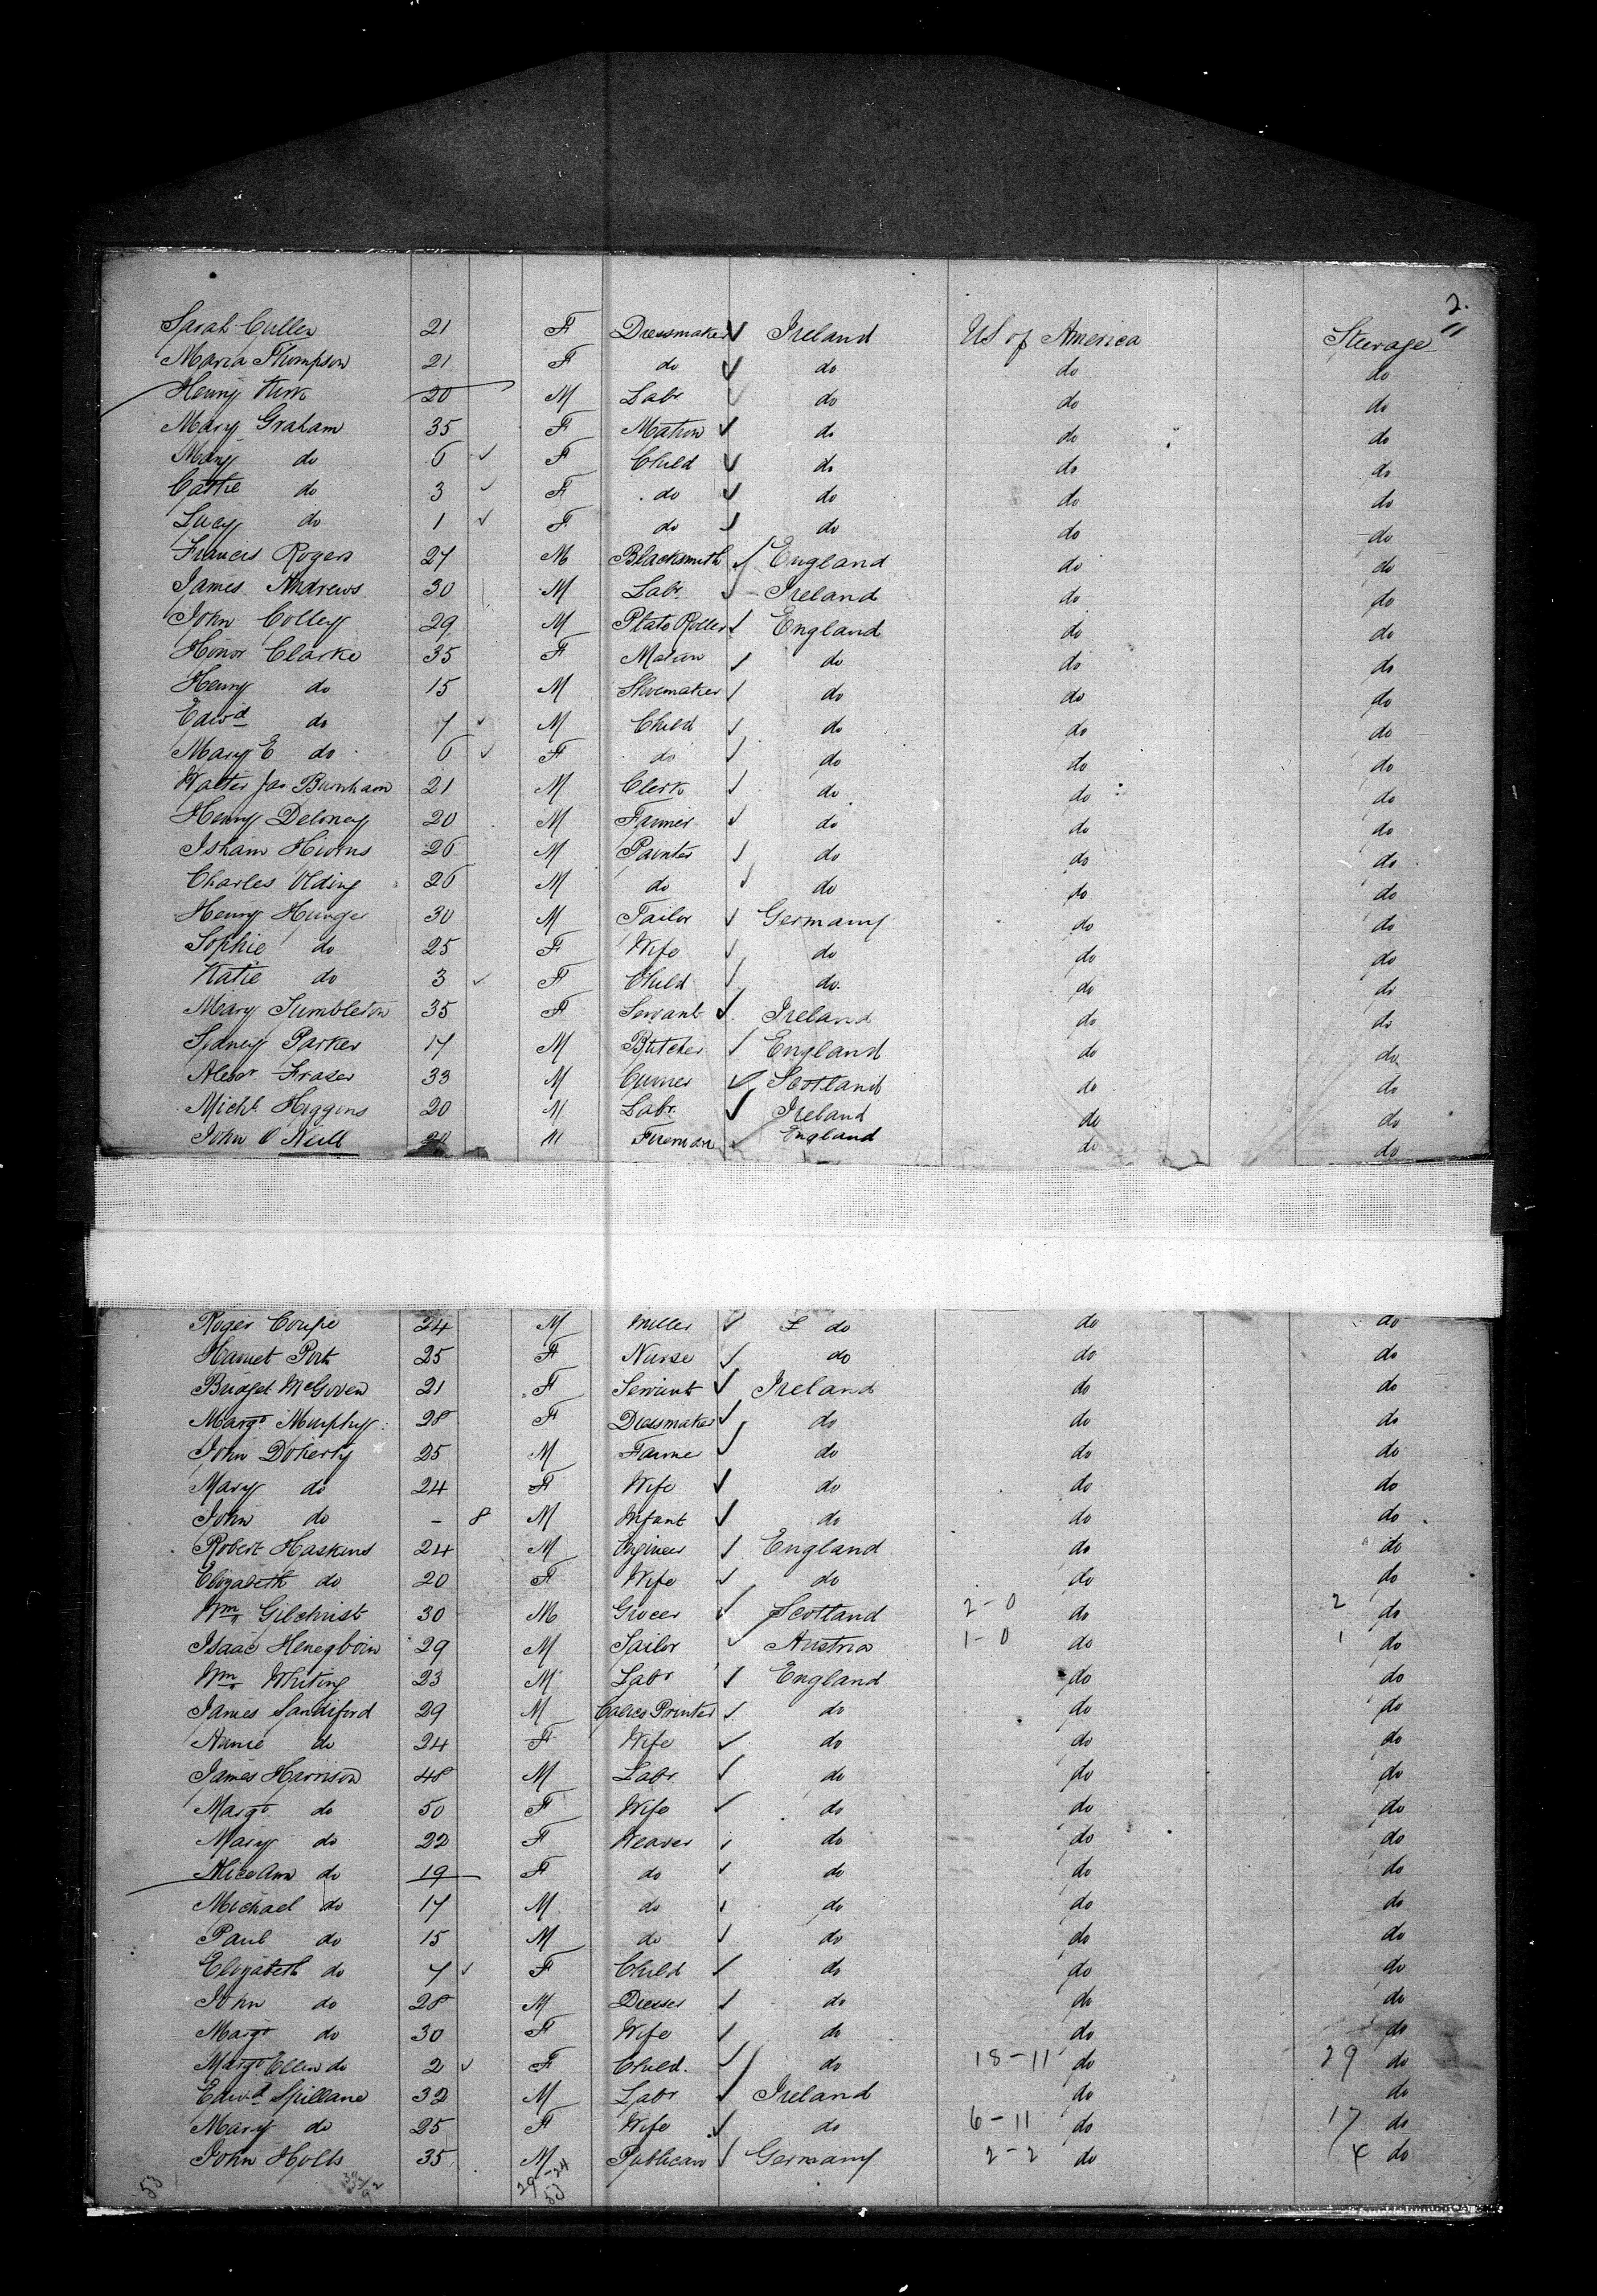 2.
Sarah Cullen 21 F Dressmaker Ireland US of America Steerage
Maria Thompson 21 F do do do do
Henry Kirk 20 M Labr do do do
Mary Graham 35 F Matron do do do
Mary do 6 F Child do do do
Cathie do 3 F do do do do
Lucy do 1 F do do do do
Francis Rogers 27 M Blacksmith England do do
James Andrews 30 M Labr Ireland do do
John Colley 29 M Plate Roller England do do
Honor Clarke 35 F Matron do do do
Henry do 15 M Shoemaker do do do
Edwd do 7 M Child do do do
Mary E do 6 F do do do do
Walter Jas Burnham 21 M Clerk do do do
Henry Deloney 20 M Farmer do do do
Isham Hiorns 26 M Painter do do do
Charles Olding 26 M do do do do
Henry Hunger 30 M Tailor Germany do do
Sophie do 25 F Wife do do do
Katie do 3 F Child do do do
Mary Tumbleton 35 F Servant Ireland do do
Sydney Parker 17 M Butcher England do do
Alexr Fraser 33 M Currier Scotland do do
Michl Higgins 20 M Labr Ireland do do
John O Neill M Fireman England do do
Roger Coupe 24 M Miller do do do
Harriet Port 25 F Nurse do do do
Bridget McGoven 21 F Servant Ireland do do
Margt Murphy 28 F Dressmaker do do do
John Doherty 25 M Farmer do do do
Mary do 24 F Wife do do do
John do - 8 M Infant do do do
Robert Haskins 24 M Engineer England do do
Elizabeth do 20 F Wife do do do
Wm Gilchrist 30 M Grocer Scotland 2-0 do 2 do
Isaac 29 M Tailor Austria 1-0 do 1 do
Wm Whiting 23 M Labr England do do
James Sandiford 29 M Calico Printer do do do
Nancie do 24 F Wife do do do
James Harrison 48 M Labr do do do
Margt do 50 F Wife do do do
Mary do 22 F Weaver do do do
Alice Ann do 19 F do do do do
Michael do 17 M do do do do
Paul do 15 M do do do do
Elizabeth do 7 F Child do do do
John do 28 M Dresser do do do
Margt do 30 F Wife do do do
Margt Ellen do 2 F Child. do 18-11 do 29 do
Edwd Spillane 32 M Labr Ireland do do
Mary do 25 F Wife do 6-11 do 17 do
John Holts 35 M Publican Germany 2-2 do 4 do
53 29-24
53